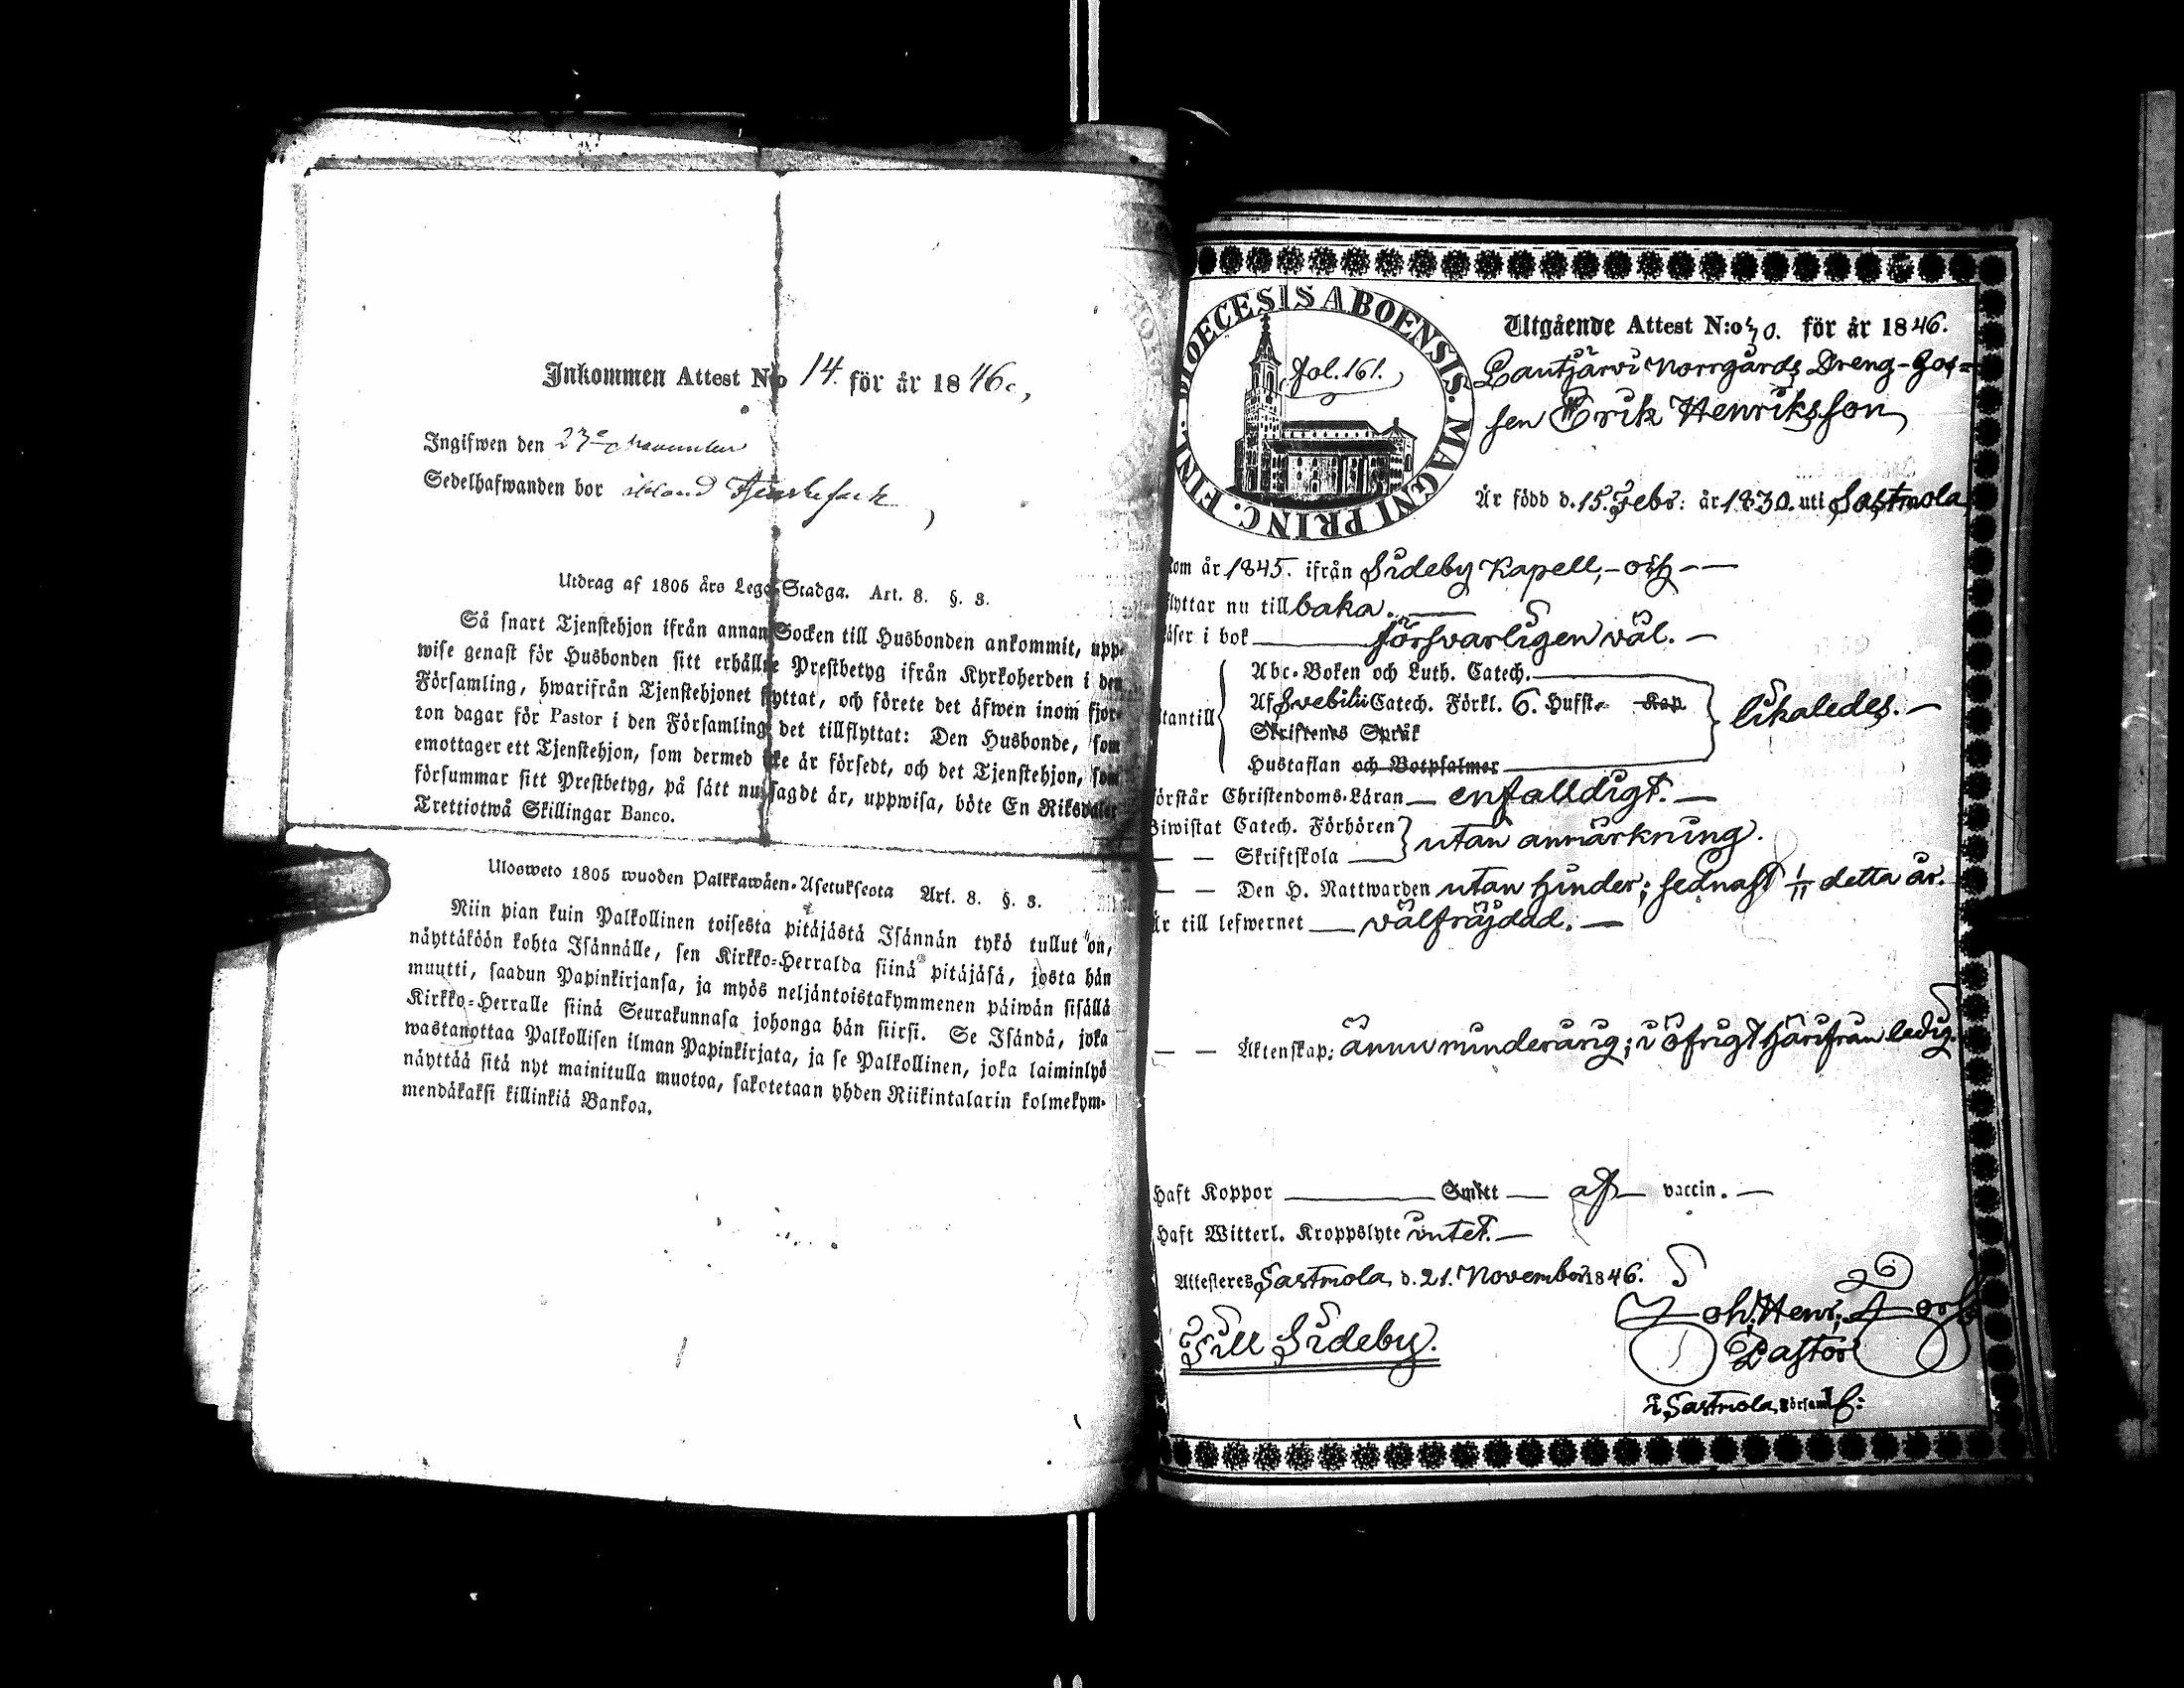 Inkommen Attest No 14. för år 1846.,
Ingifwen den 27de November
Sedelhafwanden bor ibland Tjenstefolk
Utdrag af 1805 års Lego Stadga. Art. 8. §. 3.
Så snart Tjenstehjon ifrån annan Socken till Husbonden ankommit, upp-
wise genast för Husbonden sitt erhållne Prestbetyg ifrån Kyrkoherden i den
Församling, hwarifrån Tjenstehjonet flyttat, och förete det äfwen inom fjor-
ton dagar för Pastor i den Församling det tillflyttat: Den Husbonde, som
emottager ett Tjenstehjon, som dermed icke är försedt, och det Tjenstehjon, som
försummar sitt Prestbetyg, på sätt nu sagdt är, uppwisa, böte En Riksdaler
Trettiotwå Skillingar Banco.
Ulosweto 1805 wuoden Palkkawäen-Asetuksesta Art. 8. §. 3.
Niin pian kuin Palkollinen toisesta pitäjästä Isännän tykö tullut on,
näyttäköön kohta Isännälle, sen Kirkko-Herralda siinä pitäjäsä, josta hän
muutti, saadun Papinkirjansa, ja myös neljäntoistakymmenen päiwän sisällä
Kirkko-Herralle siinä Seurakunnasa johonga hän siirsi. Se Isändä, joka
wastanottaa Palkollisen ilman Papinkirjata, ja se Palkollinen, joka laiminlyö
näyttää sitä nyt mainitulla muotoa, sakotetaan yhden Riikintalarin kolmekym-
mendäkaksi killinkiä Bankoa.
DIOECESIS ABOENSIS. MAGNI PRINC. FINL.
Fol. 161.
Utgående Attest N:o 30. för år 1846.
Lautjärvi Norrgårds Dreng-Gos-
sen Erik Henriksson,
Är född d. 15. Febr: år 1830. uti Sastmola
kom år 1845. ifrån Sideby Kapell, - och - -
flyttar nu till baka. —
läser i bok — försvarligen väl. —
utantill
Abc-Boken och Luth. Catech.
Af Svebilii Catech. Förkl. 6. Hufst. Kap
Skriftenes Språk
Hustaflan och Botpsalmer
likaledes. —
förstår Christendoms-Läran — enfalldigt. —
Biwistat Catech. Förhören
— — Skriftskola —
utan anmärkning.
— — Den H. Nattwarden utan hinder; sednast 1/11 detta år.
Är till lefwernet — välfräjdad. —
— — Äktenskap: ännu minderårig; i öfrigt härifrån ledig.
Haft Koppor — Smitt — af — vaccin. —
Haft Witterl. Kroppslyte intet. —
Attesteres Sastmola, d. 21. November 1846.
Joh: Henr: Forss
Till Sideby.
Pastor
i Sastmola Församl: